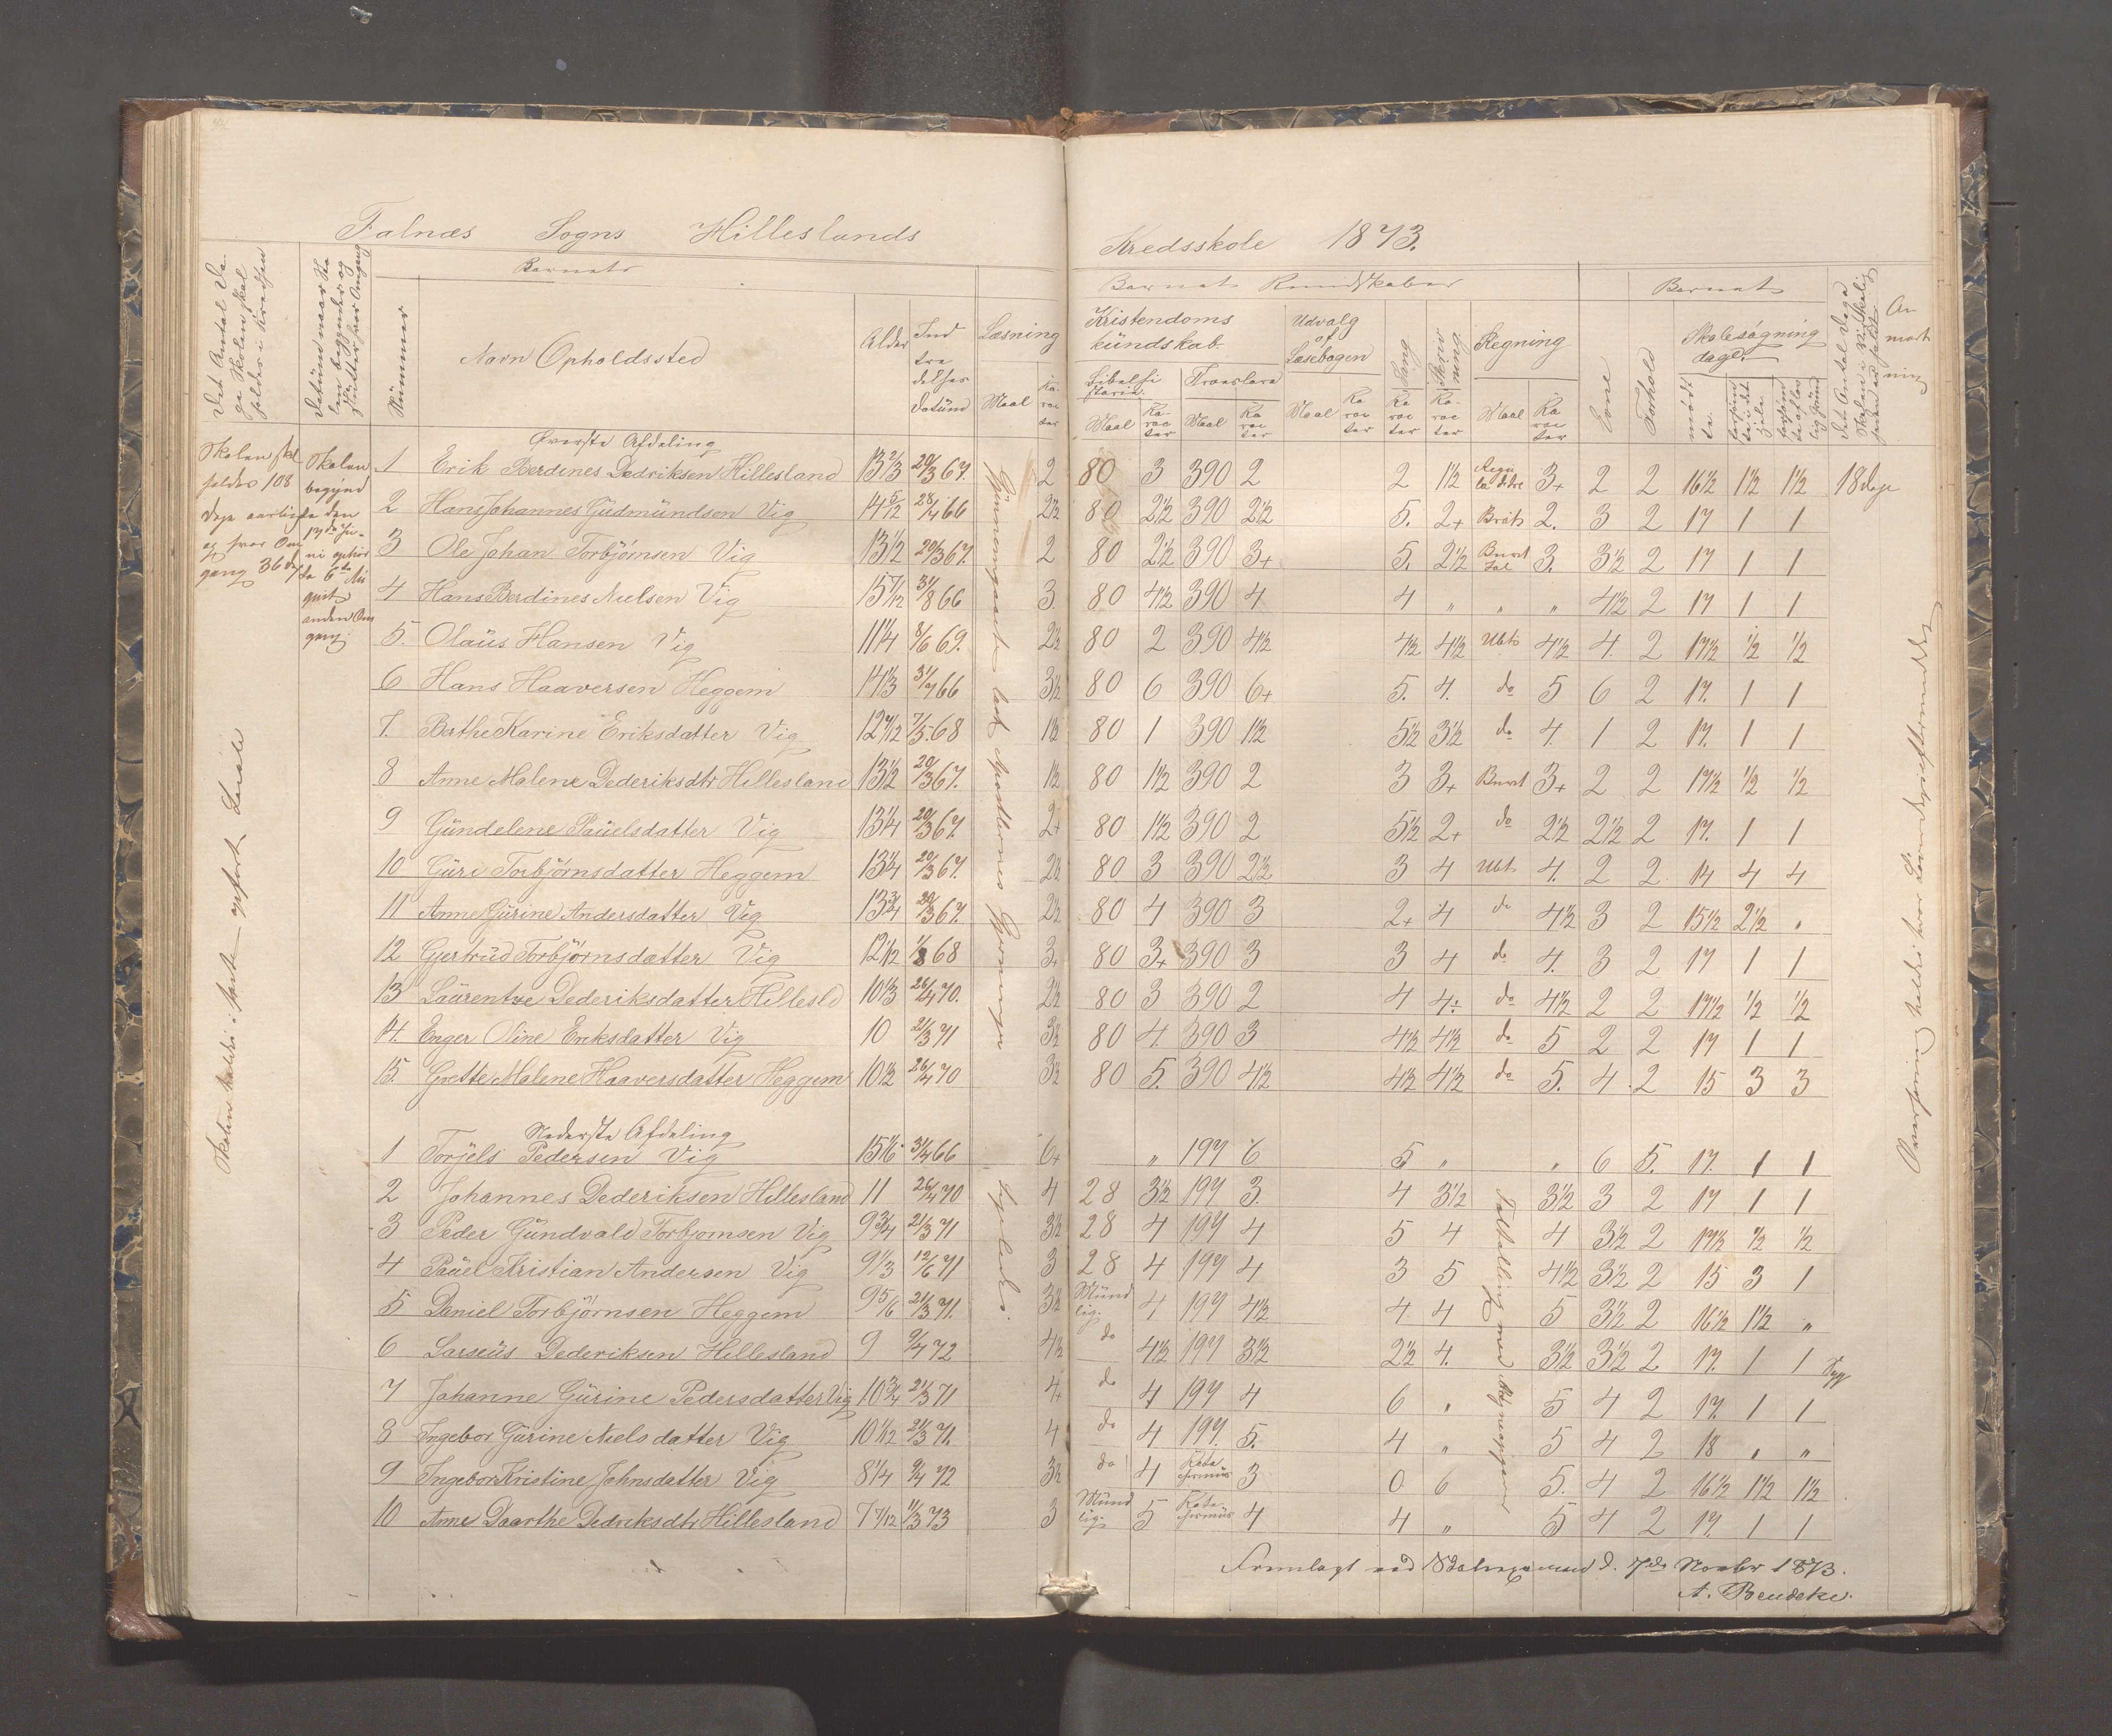 Falnæs Sogns Hilleslands Kredsskole 1873.
Det Antal Dage Skolen skal holdes i Kredsen
Datum naar Skolen begynder og slutter hver Omgang
Nummer
Barnets
Navn Opholdssted
Alder
Indtrædelses Datum
Læsning
Maal
Karacter
Barnets Kundskaber
Kristendoms kundskab
Bibelhistorie
Maal
Karacter
Troeslære
Maal
Karacter
Udvalg af Læsebogen
Maal
Karacter
Sang
Karacter
Skrivning
Karacter
Regning
Maal
Karacter
Barnets
Evne
Forhold
Skolesøgning dage
mødte
forsømte i det hele
forsømte af lovlig Grund
Det Antal Dage Skolen i Virkelig heden er holdt
Anmærkning
Skolen skal holdes 108 Dage aarlig og hver Omgang 36 Dage
Skolen begyndte den 17de Juni ophørte 6te August anden Omgang.
Øverste Afdeling
1 Erik Berdines Dedriksen Hillesland 13 2/3 20/3 67. 2 80 3 390 2 2 1½ Regu la detre 3+ 2 2 16½ 1½ 1½ 18 dage
2 Hans Johannes Gudmundsen Vig 14 5/12 28/4 66 2½ 80 2½ 390 2½ 5. 2+ Brøk 2. 3 2 17 1 1
3 Ole Johan Torbjørnsen Vig 13½ 20/3 67. 2 80 2½ 390 3+ 5. 2½ Bnevt Tal 3. 3½ 2 17 1 1
4 Hans Berdines Nielsen Vig 15 7/12 31/8 66 3 80 4½ 390 4 4 " " " 4½ 2 17 1 1
5. Olaus Hansen Vig 11¼ 8/6 69. 2½ 80 2 390 4½ 4½ 4½ Ubts 4½ 4. 2 17½ ½ ½
6 Hans Haaversen Heggem 14 1/3 31/7 66 3½ 80 6 390 6+ 5. 4. do 5 6 2 17. 1 1
7. Berthe Karine Eriksdatter Vig 12 7/12 7/5 68 1½ 80 1 390 1½ 5½ 3½ do 4. 1 2 17. 1 1
8 Anne Malene Dederiksdtr Hillesland 13½ 20/3 67. 1½ 80 1½ 390 2 3 3+ Bnevt 3+ 2 2 17½ ½ ½
9 Gundelene Pauelsdatter Vig 13¼ 20/3 67. 2+ 80 1½ 390 2 5½ 2+ do 2½ 2½ 2 17. 1 1
10 Guri Torbjørnsdatter Heggem 13¼ 20/3 67. 2½ 80 3 390 2½ 3 4 Ubts 4. 2 2 14 4 4
11 Anne Gurine Andersdatter Vig 13¾ 20/3 67. 2½ 80 4 390 3 2+ 4 do 4½ 3 2 15½ 2½ "
12 Gjertrud Torbjørnsdatter Vig 12 1/12 1/8 68 3+ 80 3+ 390 3 3 4 do 4. 3 2 17 1 1
13 Laurentze Dederiksdatter Hillesld 10 1/3 26/4 70. 2½ 80 3 390 2 4 4. do 4½ 2 2 17½ ½ ½
14. Enger Oline Eriksdatter Vig 10 21/3 71 3½ 80 4. 390 3 4½ 4½ do 5 2 2 17 1 1
15. Grette Malene Haaversdatter Heggem 10½ 26/4 70 3½ 80 5. 390 4½ 4½ 4½ do 5. 4. 2 15 3 3
Nederste Afdeling
1 Torjels Pedersen Vig 15 1/6 31/7 66 6+ " 197 6 5 " " 6 5. 17. 1 1
2 Johannes Dederiksen Hillesland 11 26/4 70 4 28 3½ 197 3. 4 3½ 3½ 3 2 17 1 1
3 Peder Gundvald Torbjornsen Vig 9¾ 21/3 71 3½ 28 4 197 4 5 4 4 3½ 2 17½ ½ ½
4 Pauel Kristian Andersen Vig 9 1/3 12/6 71 3 28 4 197 4 3 5 4½ 3½ 2 15 3 1
5 Daniel Torbjørnsen Heggem 9 5/6 21/3 71. 3½ Mündlig. 4 197 4½ 4. 4 5 3½ 2 16½ 1½ "
6 Larseus Dederiksen Hillesland 9 9/4 72 4½ do 4½ 197 3½ 2½ 4. 3½ 3½ 2 17. 1 1 Syg
7 Johanne Gurine Pedersdatter Vig 10¾ 21/3 71 4+ do 4 197 4 6 " 5 4 2 17. 1 1
8 Ingebor Gurine Nielsdatter Vig 10 1/12 21/3 71. 4 do 4 197. 5. 4 " 5 4 2 18 " "
9 Ingebor Kristine Johnsdatter Vig 8¼ 9/4 72 3½ do 4 Kate chismus 3 0. 6 5. 4 2 16½ 1½ 1½
10 Anne Daarthe Dedriksdtr Hillesland 7 7/12 11/3 73 3 Mündlig. 5 Kate chismus 4 4 " 5 4 2 17. 1 1
Gjennemgaaet Apostlernes Gjerninger
Skolen holdes
Fremlagt ved d. 7de Novbr 1873.
A. Bendeke.